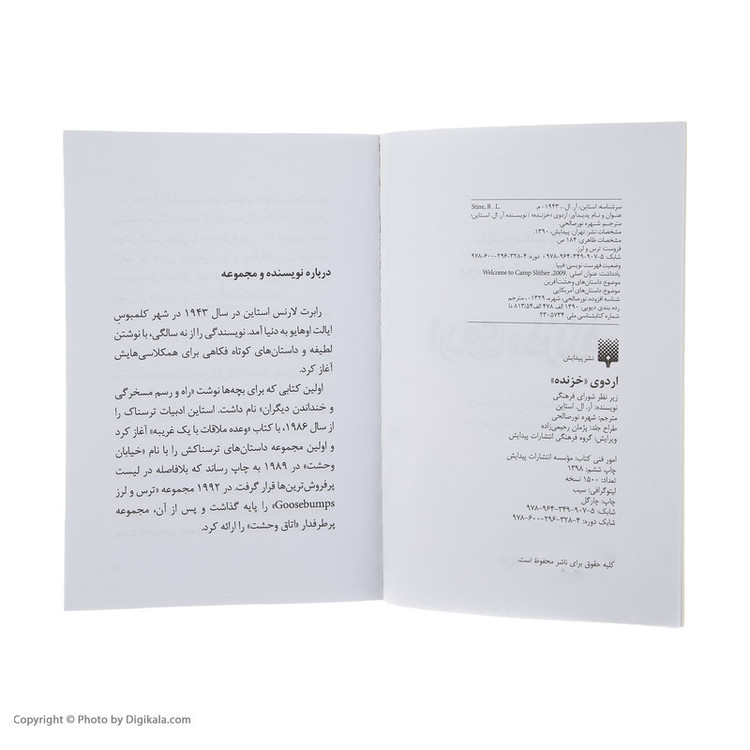 سرشناسه: استاین، آر. ال.، ۱۹۴۳- م. Stine, R . L.
عنوان و نام پدیدآور: اردوی «خزنده» / نویسنده آر. ال. استاین؛
مترجم شهره نورصالحی.
مشخصات نشر: تهران: پیدایش، ۱۳۹۰.
مشخصات ظاهری: ۱۸۴ ص.
فروست: ترس و لرز
شابک: ۵-۹۰۷-۳۴۹-۹۶۴-۹۷۸ دوره: ۴-۳۲۸-۲۹۶-۶۰۰-۹۷۸
وضعیت فهرست نویسی: فیپا
یادداشت: عنوان اصلی: Welcome to Camp Slither ,2009.
موضوع: داستان‌های وحشت‌آفرین
موضوع: داستان‌های آمریکایی
شناسه افزوده: نورصالحی، شهره، ۱۳۲۹-، مترجم
رده بندی دیویی: ۱۳۹۰ الف ۴۷۸ الف ۸۱۳/۵۴ دا
شماره کتابشناسی ملی: ۲۳۰۵۷۳۴
نشر پیدایش
اردوی «خزنده»
زیر نظر شورای فرهنگی
نویسنده: آر. ال. استاین
مترجم: شهره نورصالحی
طراح جلد: پژمان رحیمی‌زاده
ویرایش: گروه فرهنگی انتشارات پیدایش
امور فنی کتاب: مؤسسه انتشارات پیدایش
چاپ ششم: ۱۳۹۸
تعداد: ۱۵۰۰ نسخه
لیتوگرافی: سیب
چاپ: چارگل
شابک: ۵-۹۰۷-۳۴۹-۹۶۴-۹۷۸
شابک دوره: ۴-۳۲۸-۲۹۶-۶۰۰-۹۷۸
کلیه حقوق برای ناشر محفوظ است.
درباره نویسنده و مجموعه
رابرت لارنس استاین در سال ۱۹۴۳ در شهر کلمبوس
ایالت اوهایو به دنیا آمد. نویسندگی را از نه سالگی، با نوشتن
لطیفه و داستان‌های کوتاه فکاهی برای همکلاسی‌هایش
آغاز کرد.
اولین کتابی که برای بچه‌ها نوشت «راه و رسم مسخرگی
و خنداندن دیگران» نام داشت. استاین ادبیات ترسناک را
از سال ۱۹۸۶، با کتاب «وعده ملاقات با یک غریبه» آغاز کرد
و اولین مجموعه داستان‌های ترسناکش را با نام «خیابان
وحشت» در ۱۹۸۹ به چاپ رساند که بلافاصله در لیست
پرفروش‌ترین‌ها قرار گرفت. در ۱۹۹۲ مجموعه «ترس و لرز
Goosebumps» را پایه گذاشت و پس از آن، مجموعه
پرطرفدار «اتاق وحشت» را ارائه کرد.
Copyright © Photo by Digikala.com